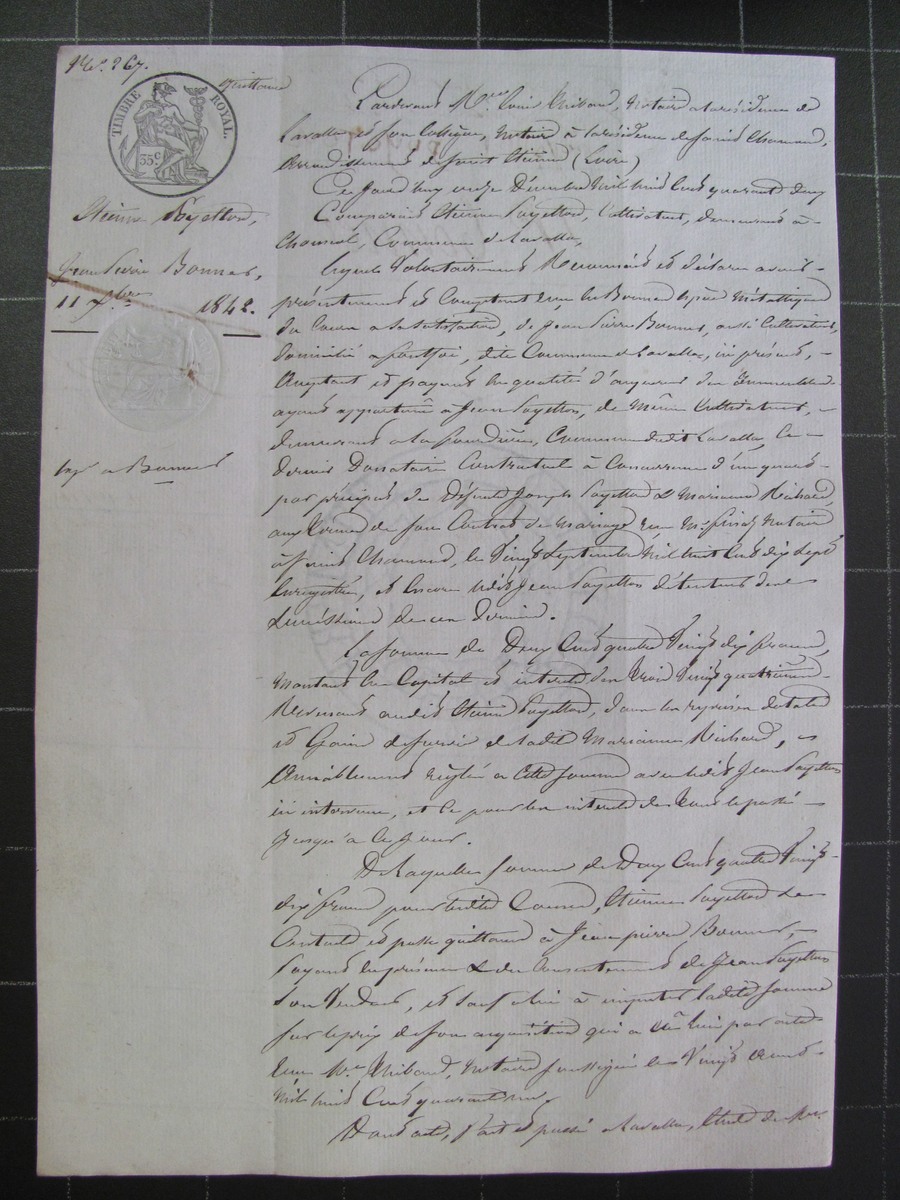 N°. 267.
Quittance
TIMBRE ROYAL.
35 c
Etienne Payetton,
Jean Pierre Bonnet,
11 Xbre 1842.
exp a Bonnet
Pardevant Me Louis Thibaud, Notaire a la résidence de
Lavalla et son Collègue, Notaire à la résidence de saint Chamond,
Arrondissement de saint Etienne (Loire)
Ce jourd'huy onze Décembre Mil huit Cent quarante deux
Comparait Etienne Payetton, Cultivateur, demeurant à
Commune de Lavalla,
Lequel Volontairement Reconnait et déclare avoir
présentement et Comptant reçu en Bonnes espèces Métalliques
du Cours a sa satisfaction, de Jean Pierre Bonnet, aussi Cultivateur,
domicilié a dite Commune de Lavalla, ici présent,
Acceptant et payant en qualité d'acquéreur des Immeubles
ayant appartenu à Jean Payetton, de même Cultivateur,
demeurant a la Commune dudit Lavalla, Ce
dernier Donataire Contractuel à Concurrence d'un quart
par préciput de Défunts Joseph Payetton & Marianne Richard,
aux termes de son Contrat de Mariage reçu Me Notaire
à saint Chamond, le Vingt Septembre Mil huit Cent dix sept
Enregistré, et Encore ledit Jean Payetton détenteur de la
succession de ces derniers.
La somme de Deux Cent quatre Vingt dix francs,
Montant en Capital et intérêts d'un trois Vingt quatrième
Revenant audit Etienne Payetton, dans les reprises dotales
et Gain de survie de ladite Marianne Richard,
Amiablement réglé a Cette somme avec ledit Jean Payetton
ici intervenu, et Ce pour les intérêts de tout le passé
jusqu'a Ce jour.
De laquelle somme de Deux Cent quatre Vingt
dix francs pour ladite Cause, Etienne Payetton se
Contente et passe quittance à Jean pierre Bonnet,
Payant en présence & du Consentement de Jean Payetton
son Vendeur, et sauf à lui à imputer ladite somme
sur le prix de son acquisition qui a eu lieu par acte
reçu Me Thibaud, Notaire soussigné le Vingt
Mil huit Cent quarante un,
Dont acte, fait et passé a Lavalla, Etude de Me